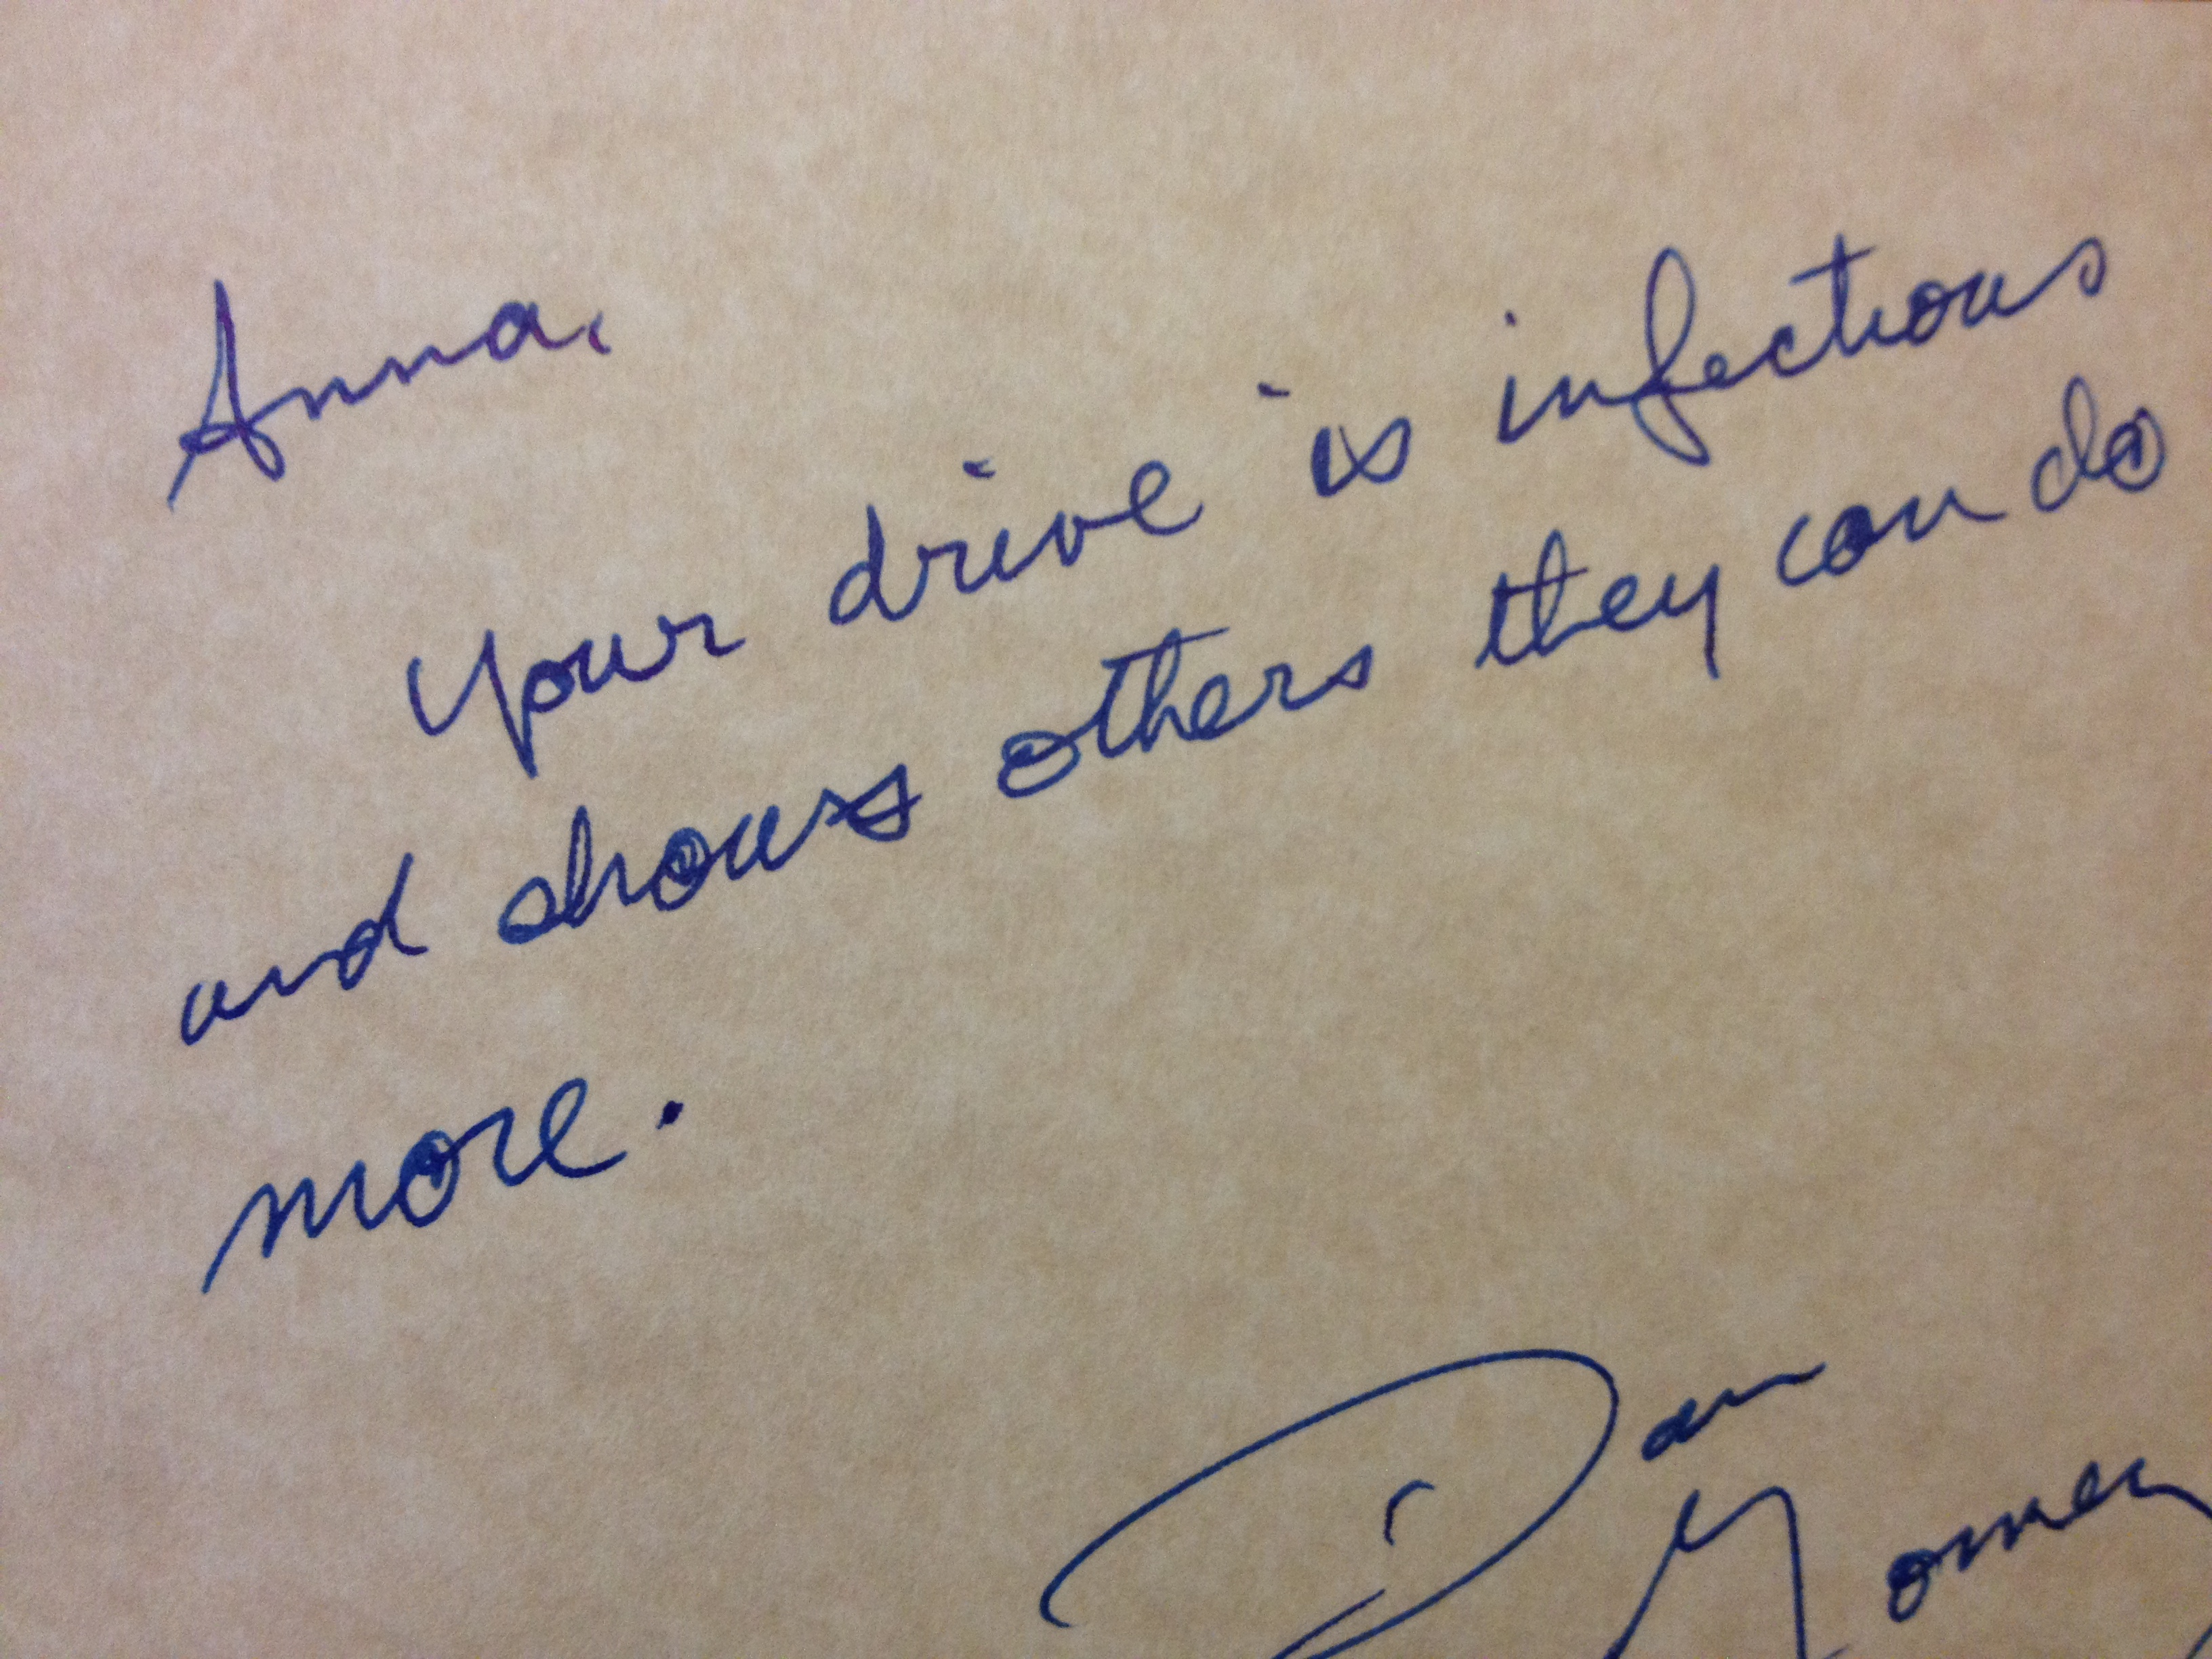 Anna,
Your drive is infectious
and shows others they can do
more.
Dan